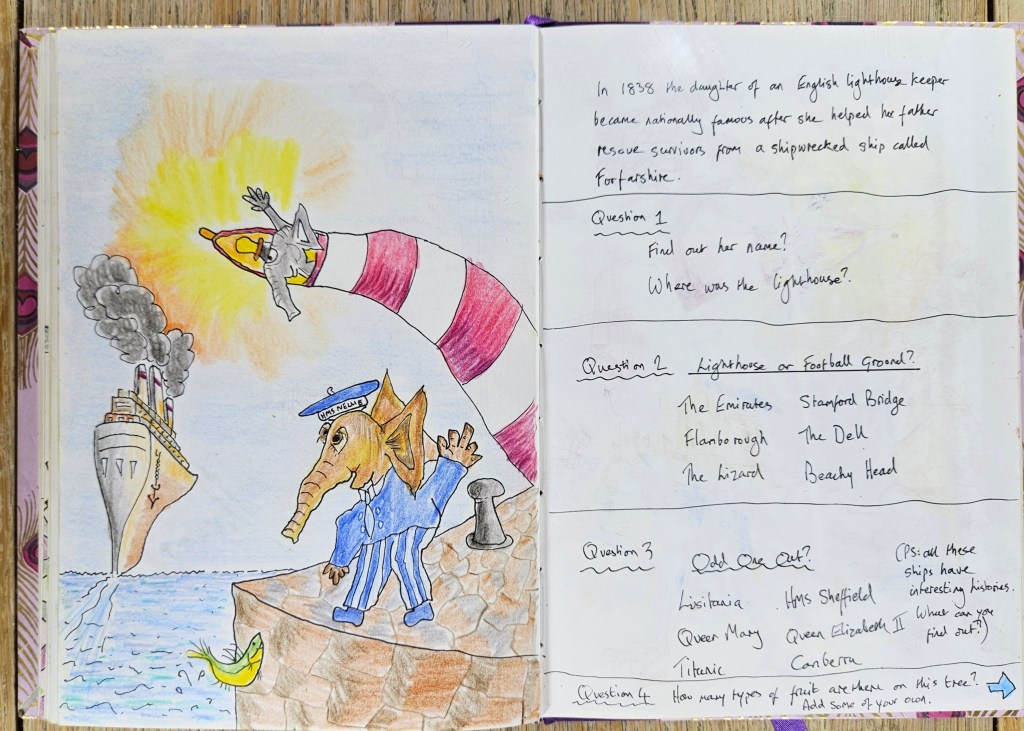 HMS NELLIE
In 1838 the daughter of an English lighthouse keeper
became nationally famous after she helped her father
rescue survivors from a shipwrecked ship called
Forfarshire.
Question 1
Find out her name?
Where was the lighthouse?
Question 2 Lighthouse or Football Ground?
The Emirates Stamford Bridge
Flamborough The Dell
The Lizard Beachy Head
Question 3 Odd One Out?
Lusitania HMS Sheffield
Queen Mary Queen Elizabeth II
Titanic Canberra
(PS: all these
ships have
interesting histories.
What can you
find out?)
Question 4 How many types of fruit are there on this tree?
Add some of your own.